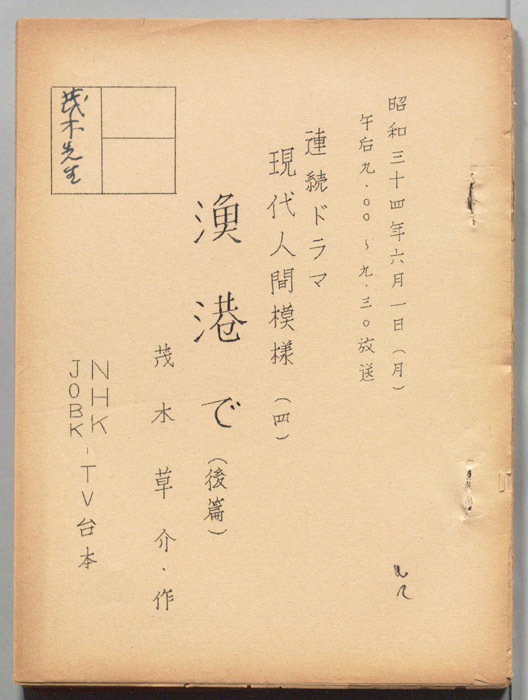 昭和三十四年六月一日（月）
午后九.00～九.30放送
連続ドラマ
現代人間模様（四）
漁港で（後篇）
茂木草介・作
NHK-TV台本
JOBK
茂木先生